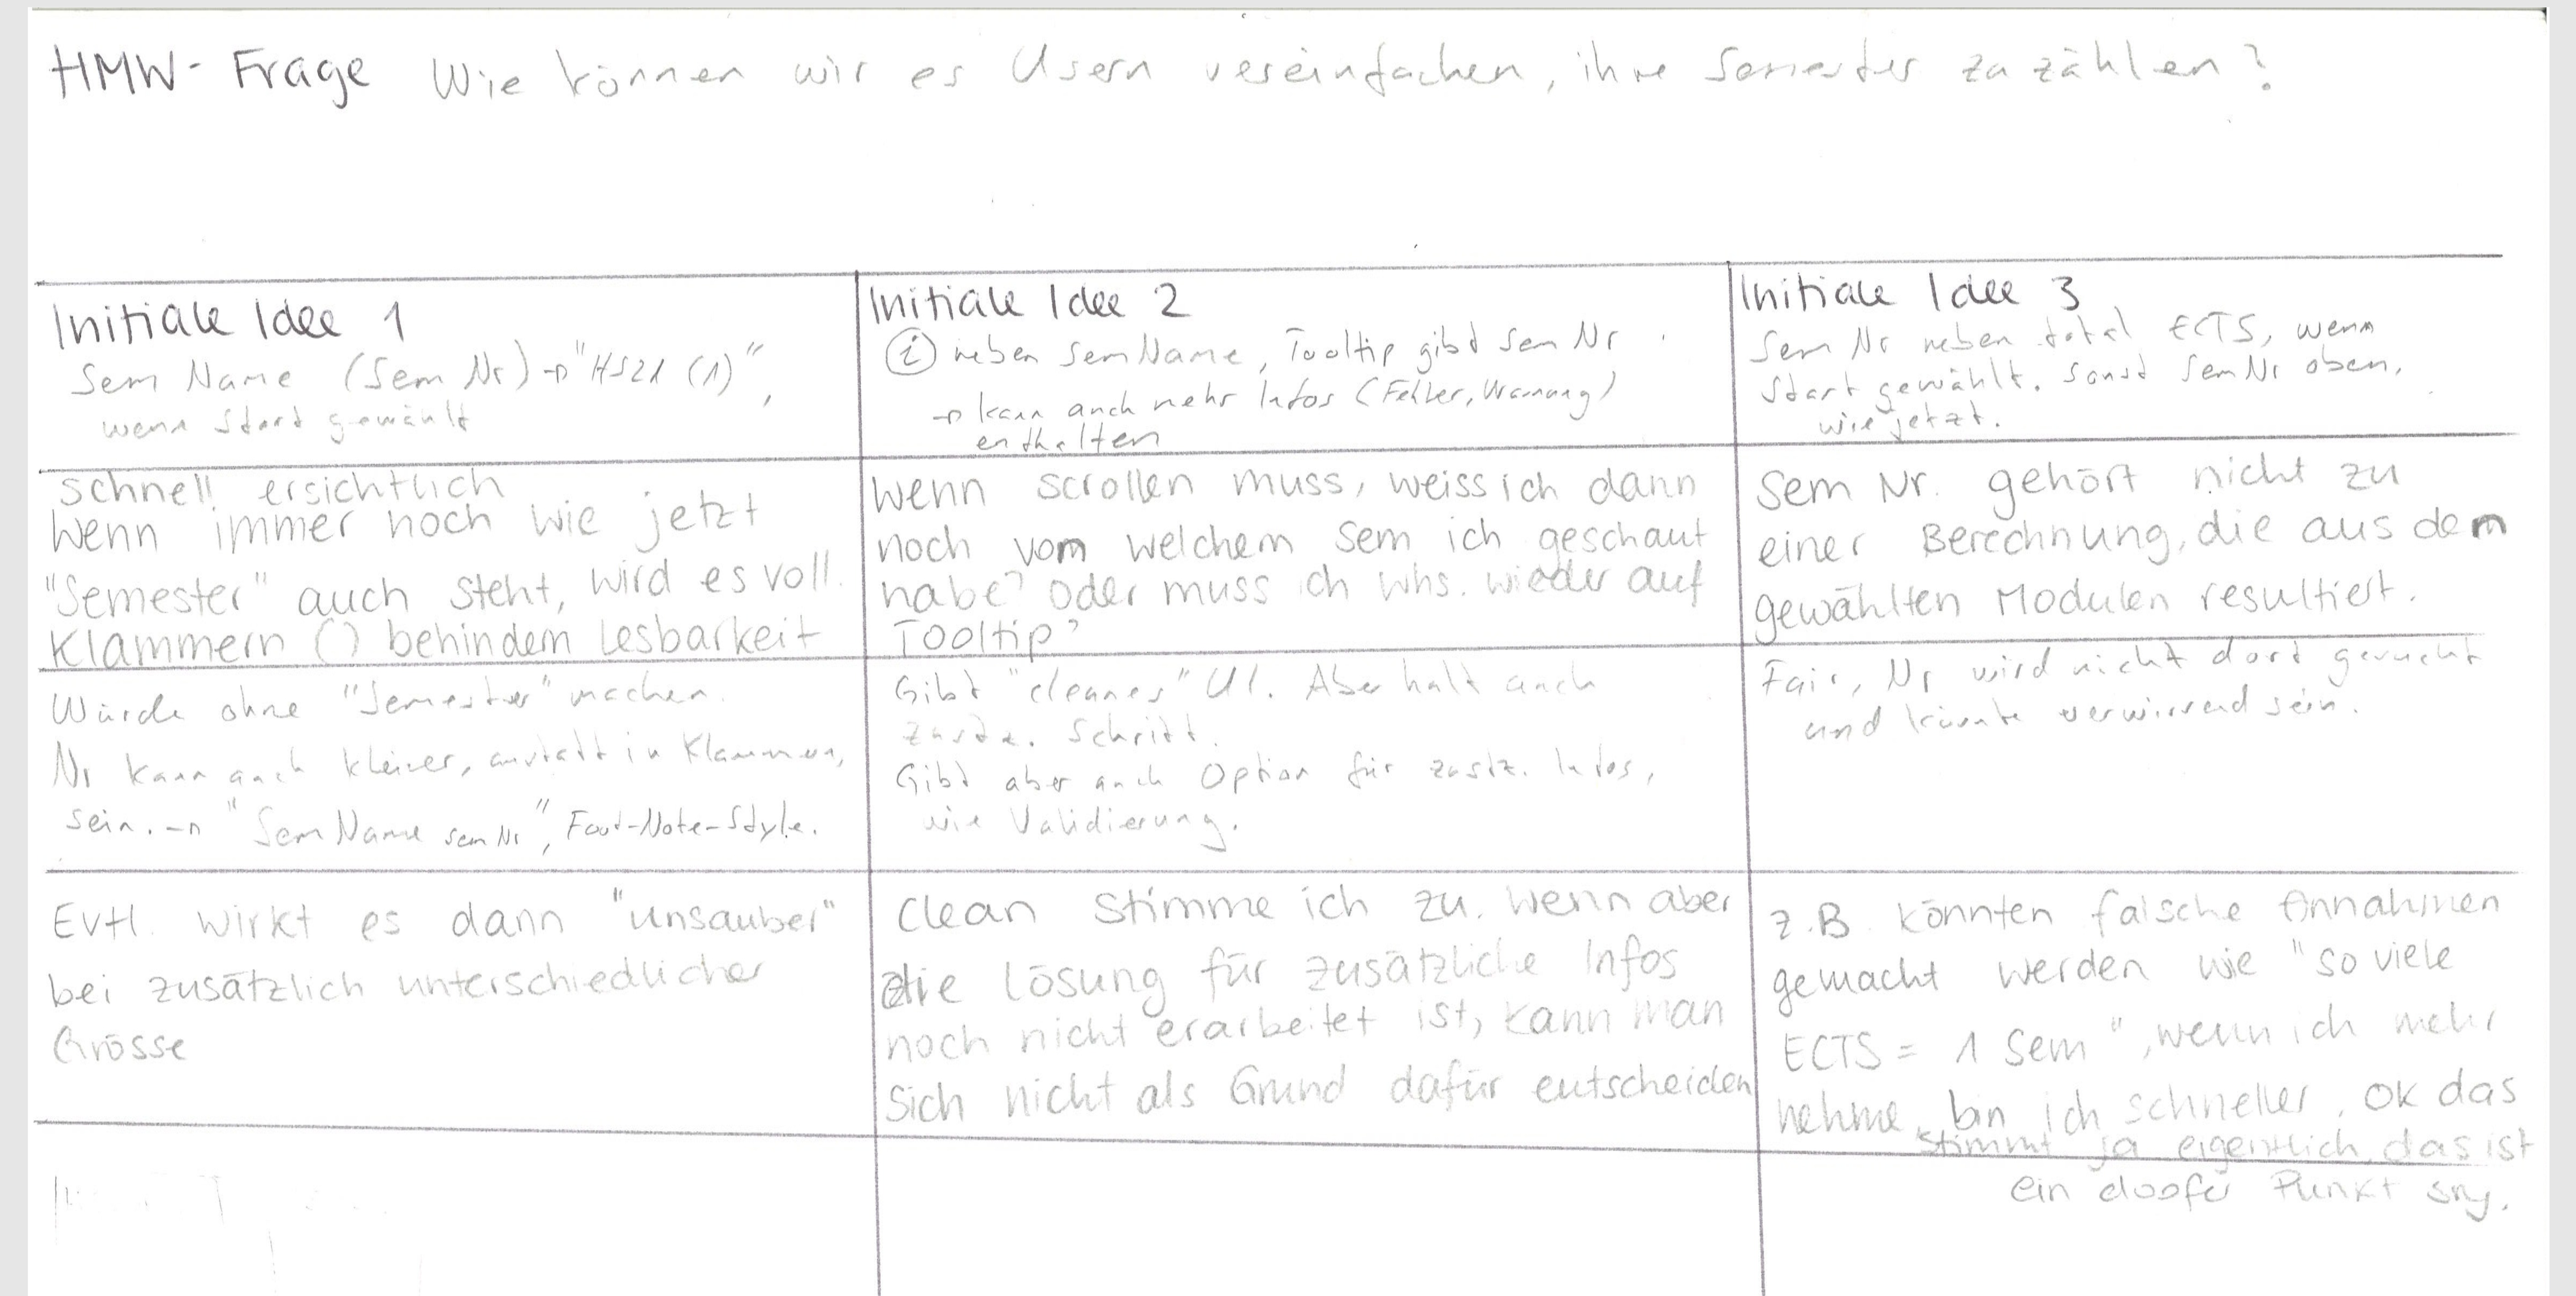 HMW-Frage Wie können wir es Usern vereinfachen, ihre Semester zu zählen?
Initiale Idee 1
Sem Name (Sem Nr) → "HS21 (1)",
wenn Start gewählt
Initiale Idee 2
(i) neben Sem Name, Tooltip gibt Sem Nr
→ kann auch mehr Infos (Fehler, Warnung)
enthalten
Initiale Idee 3
Sem Nr neben total ECTS, wenn
Start gewählt. Sonst Sem Nr oben,
wie jetzt.
schnell ersichtlich
Wenn immer noch wie jetzt
"Semester" auch steht, wird es voll.
Klammern () behindern Lesbarkeit
Wenn scrollen muss, weiss ich dann
noch vom welchem Sem ich geschaut
habe? Oder muss ich whs. wieder auf
Tooltip?
Sem Nr. gehört nicht zu
einer Berechnung, die aus dem
gewählten Modulen resultiert.
Würde ohne "Semester" machen.
Nr kann auch kleiner, anstatt in Klammern,
sein. → "Sem Name sem Nr", Foot-Note-Style.
Gibt "cleanes" UI. Aber halt auch
zusätz. Schritt.
Gibt aber auch Option für zusätz. Infos,
wie Validierung.
Fair, Nr wird nicht dort gesucht
und könnte verwirrend sein.
Evtl. wirkt es dann "unsauber"
bei zusätzlich unterschiedlicher
Grösse
Clean stimme ich zu. Wenn aber
die Lösung für zusätzliche Infos
noch nicht erarbeitet ist, kann man
sich nicht als Grund dafür entscheiden
z.B. könnten falsche Annahmen
gemacht werden wie "so viele
ECTS = 1 Sem", wenn ich mehr
nehme, bin ich schneller. Ok das
stimmt ja eigentlich, das ist
ein doofer Punkt sry.